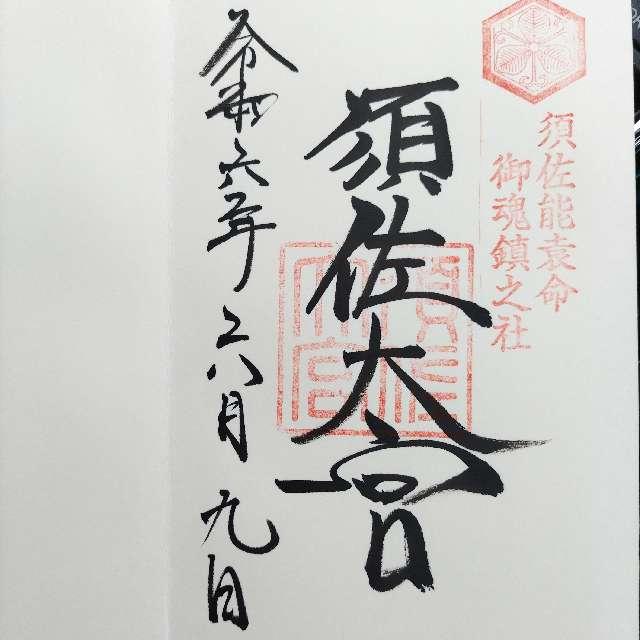 須佐能袁命
御魂鎮之社
須佐大宮
須佐大宮
令和六年六月九日